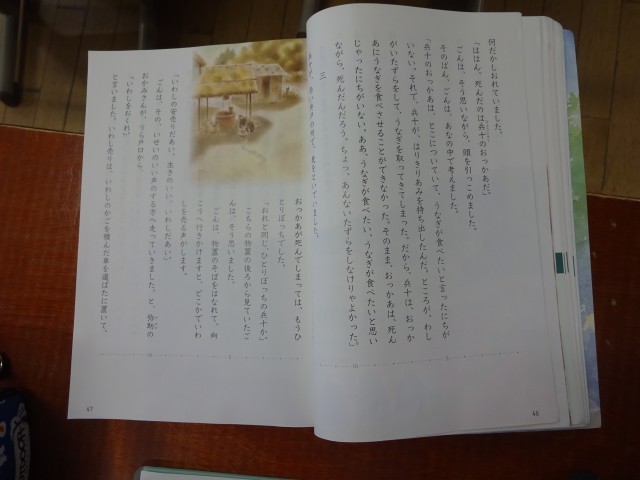 何だかしおれていました。
「ははん、死んだのは兵十のおっかあだ。」
ごんは、そう思いながら、頭を引っこめました。
そのばん、ごんは、あなの中で考えました。
「兵十のおっかあは、とこについていて、うなぎが食べたいと言ったにちが
いない。それで、兵十が、はりきりあみを持ち出したんだ。ところが、わし
がいたずらをして、うなぎを取ってきてしまった。だから、兵十は、おっか
あにうなぎを食べさせることができなかった。そのまま、おっかあは、死ん
じゃったにちがいない。ああ、うなぎが食べたい、うなぎが食べたいと思い
ながら、死んだんだろう。ちょっ、あんないたずらをしなけりゃよかった。」
三
いました。
おっかあが死んでしまっては、もうひ
とりぼっちでした。
「おれと同じ、ひとりぼっちの兵十か。」
こちらの物置の後ろから見ていたご
んは、そう思いました。
ごんは、物置のそばをはなれて、向
こうへ行きかけますと、どこかでいわ
しを売る声がします。
「いわしの安売りだあい。生きのいい、いわしだあい。」
ごんは、その、いせいのいい声のする方へ走っていきました。と、弥助の
おかみさんが、うら戸口から、
「いわしをおくれ。」
と言いました。いわし売りは、いわしのかごを積んだ車を道ばたに置いて、
46
47